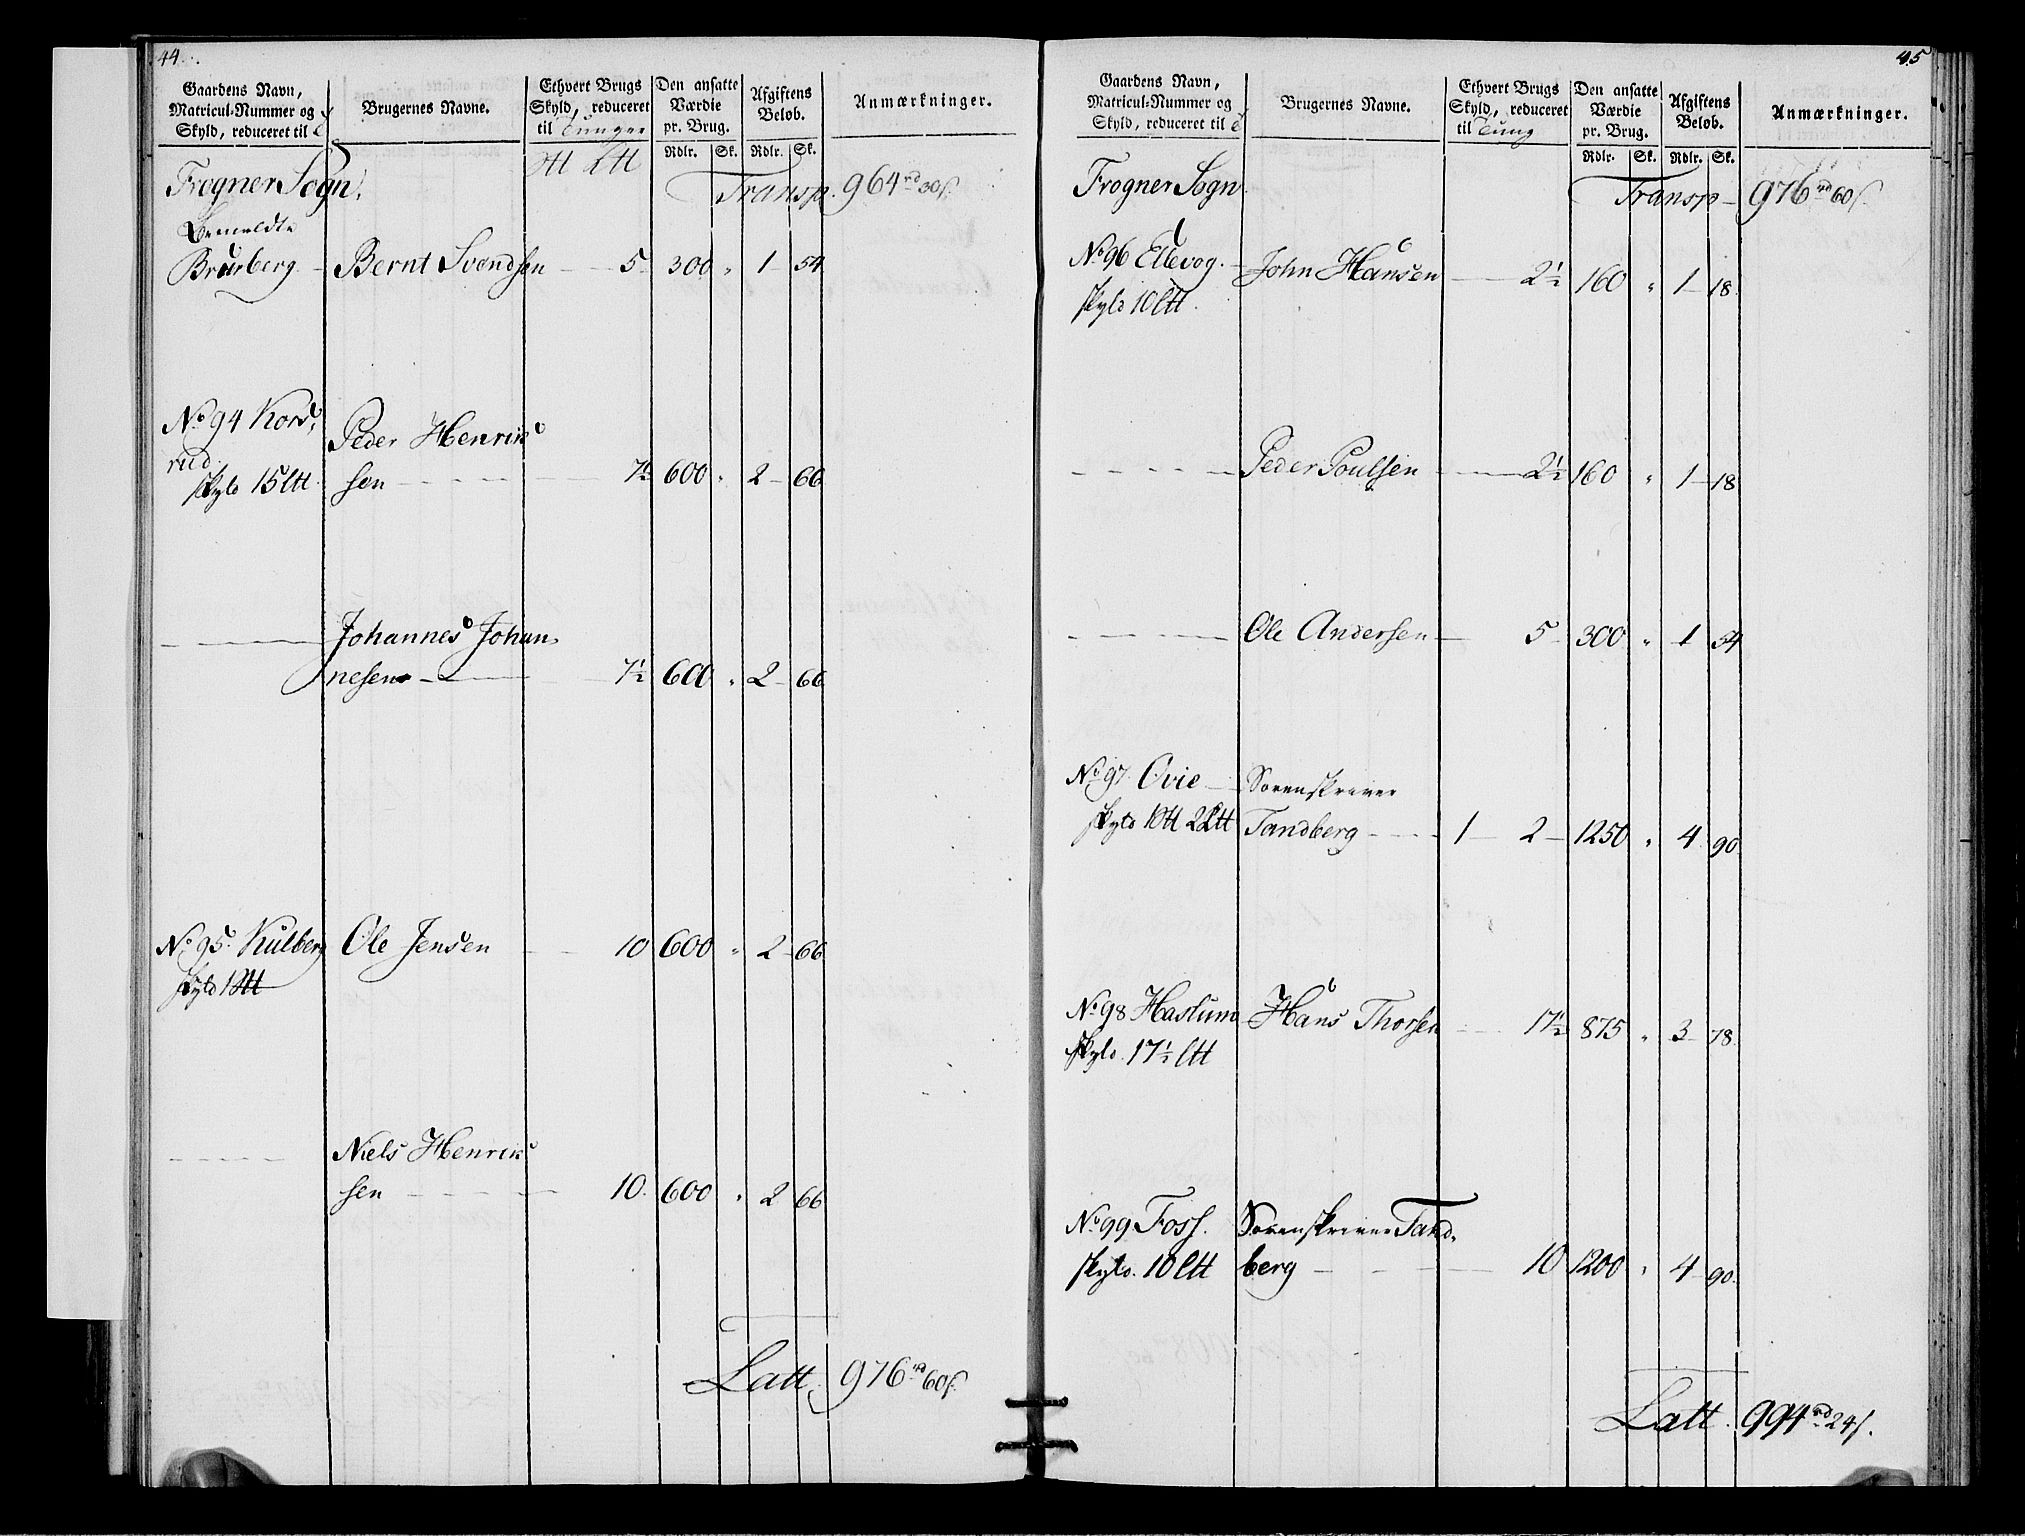 44.
Gaardens Navn, Matricul-Nummer og Skyld, reduceret til
Brugernes Navne.
Ethvert Brugs Skyld, reduceret til Tunger
Den ansatte Værdie pr. Brug.
Afgiftens Beløb.
Anmærkninger.
Rdlr. Sk. Rdlr. Sk.
Frogner Sogn. Transp. 964 rd 30 s.
Bemeldte
Brurberg Bernt Svendsen 5 300 " 1 54
No 94 Kors, Peder Henrik
rud
skyld 15 Ltt. sen 7½ 600 " 2 66
Johannes Johan,
nesen 7½ 600 " 2 66
No 95. Kulberg Ole Jensen 10 600 " 2 66
skyld 1 Stt
Niels Henrik
sen 10. 600 " 2 66
Latt. 976 rd 60 s.
45
Gaardens Navn, Matricul-Nummer og Skyld, reduceret til
Brugernes Navne.
Ethvert Brugs Skyld, reduceret til Tung
Den ansatte Værdie pr. Brug.
Afgiftens Beløb.
Anmærkninger.
Rdlr. Sk. Rdlr. Sk.
Frogner Sogn. Transp 976 rd 60 s.
No 96 Ellevog. John Hansen 2½ 160 " 1 18
skyld 10 Ltt.
Peder Poulsen 2½ 160 " 1 18
Ole Andersen 5 300 " 1 54
No 97. Ovie Sorenskriver
skyld 1 Stt 2 Ltt Tandberg 1 2 1250 " 4 90
No 98 Haslum Hans Thorsen 17½ 875 " 3 78
skyld. 17½ Ltt
No 99 Foss. Sorenskriver Tand,
skyld. 10 Ltt berg 10 1200 " 4 90.
Latt. 994 rd 24 s.